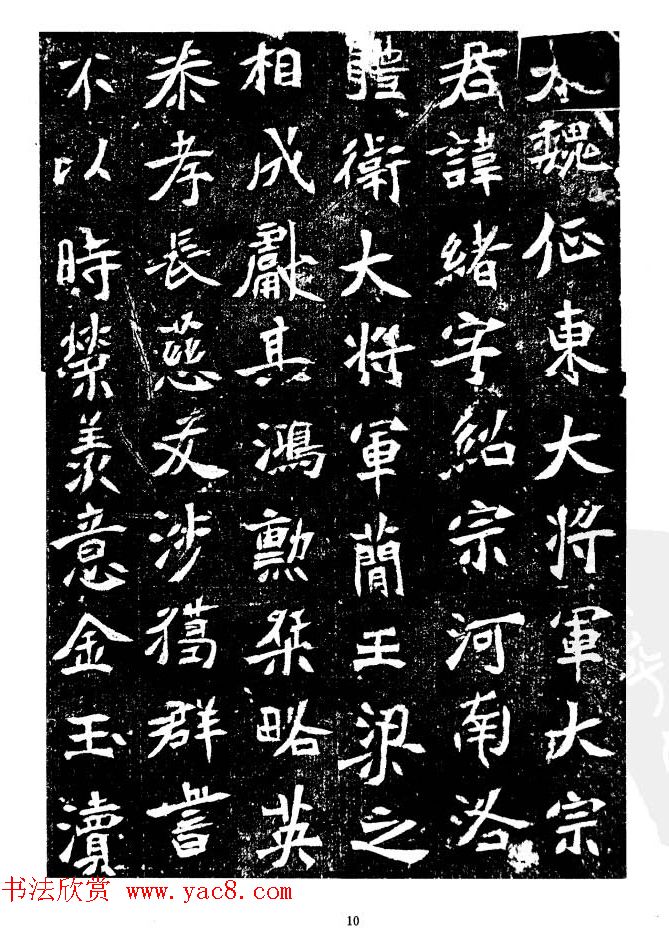 大魏征東大將軍大宗
君諱緒字紹宗河南洛
體衛大將軍簡王梁之
相成獻其鴻勳桀略英
恭孝長慈友涉獦群書
不以時榮羨意金玉瀆
书法欣赏 www.yac8.com
10